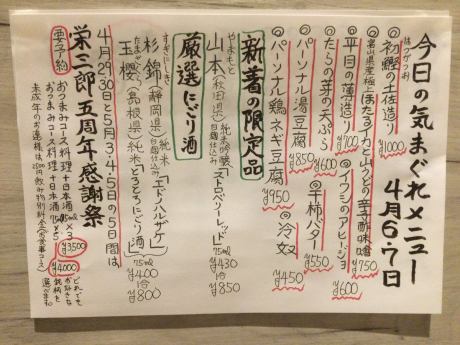 今日の気まぐれメニュー
4月6.7日
はつがつお
◎初鰹の土佐造り ¥1000
◎平目の薄造り ¥700
富山県産極上ほたるイカと山うどの辛子酢味噌 ¥750
◎たらの芽の天ぷら ¥600
◎イワシのアヒージョ ¥600
◎パーソナル湯豆腐 ¥850
◎干柿バター ¥550
◎パーソナル鶏ネギ豆腐 ¥950
◎冷奴 ¥450
新着の限定品
やまもと
山本(秋田県)純米吟醸「ストロベリーレッド」75ml ¥430 1合 ¥850
厳選にごり酒
すぎにしき
杉錦(静岡県)純米「エドノハルザケ」
たまざくら
玉櫻(島根県)純米とろとろにごり酒 75ml ¥400 1合 ¥800
4月29.30日と5月3.4.5日の5日間は
栄三郎五周年感謝祭
要予約
おつまみコース料理+日本酒75ml×3 ¥3500
おつまみコース料理+日本酒75ml×5 ¥4000
どれでも好きな銘柄を選べます。